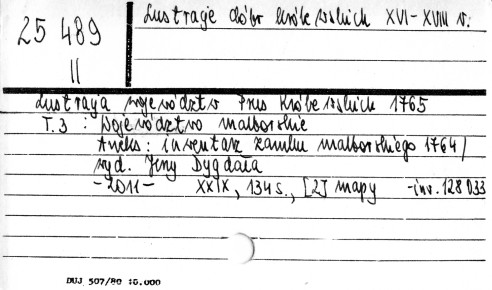 Lustracje dóbr królewskich XVI-XVIII w.
25 489
II
Lustracja województw Prus Królewskich 1765
T.3 : Województwo malborskie
Aneks: inwentarz zamku malborskiego 1764/
wyd. Jerzy Dygdała
-2011- XXIX, 134 s., [2] mapy -inw. 128 033
DUJ 507/80 10.000